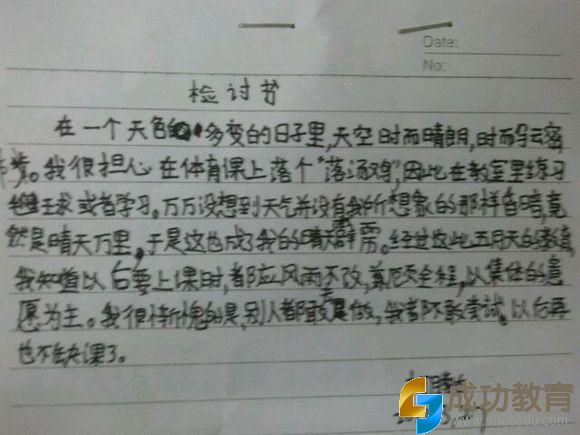 Date:
No:
检讨书
在一个天色多变的日子里,天空时而晴朗,时而乌云密
布。我很担心在体育课上落个"落汤鸡",因此在教室里练习
球或者学习。万万没想到天气并没有我所想象的那样昏暗,竟
然是晴天万里,于是这也成了我的晴天霹雳。经过这此五月天的教育,
我知道以后要上课时,都应风雨不改,全程,以集体的意
愿为主。我很惭愧的是,别人都敢做,我都不敢尝试。以后再
也不缺课了。
成功教育
www.succedu.com